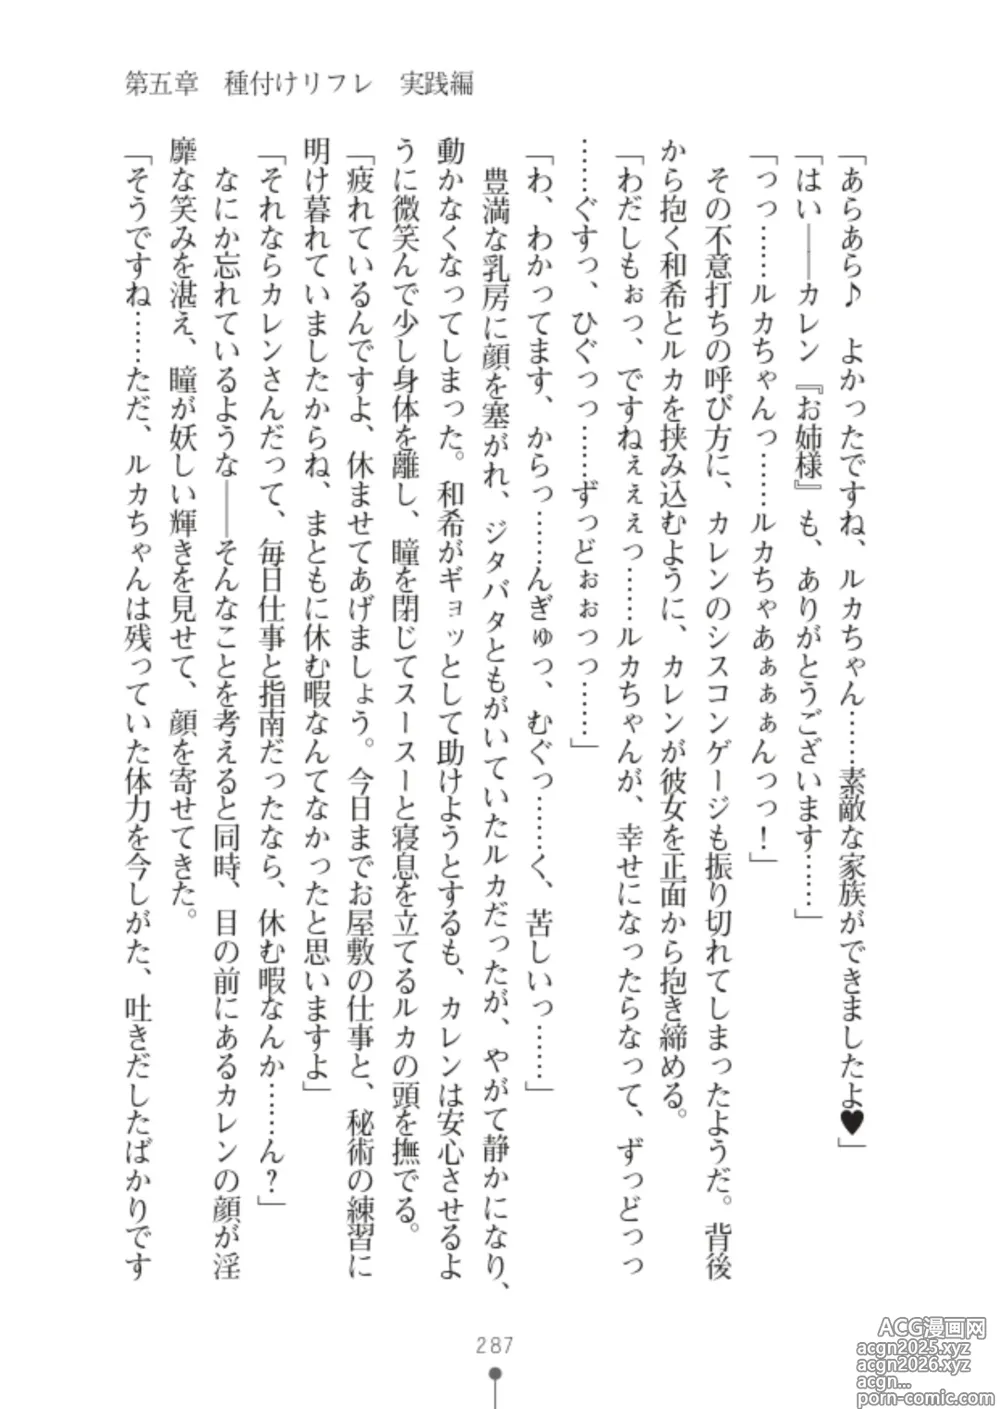 第五章　種付けリフレ　実践編
「あらあら♪　よかったですね、ルカちゃん……素敵な家族ができましたよ♥」
「はい――カレン『お姉様』も、ありがとうございます……」
「っっ……ルカちゃんっ……ルカちゃあぁぁぁんっっ！」
　その不意打ちの呼び方に、カレンのシスコンゲージも振り切れてしまったようだ。背後
から抱く和希とルカを挟み込むように、カレンが彼女を正面から抱き締める。
「わだしもぉっ、ですねぇぇぇっ……ルカちゃんが、幸せになったらなって、ずっどっっ
……ぐすっ、ひぐっっ……ずっどぉぉっっ……」
「わ、わかってます、からっ……んぎゅっ、むぐっ……く、苦しいっ……」
　豊満な乳房に顔を塞がれ、ジタバタともがいていたルカだったが、やがて静かになり、
動かなくなってしまった。和希がギョッとして助けようとするも、カレンは安心させるよ
うに微笑んで少し身体を離し、瞳を閉じてスースーと寝息を立てるルカの頭を撫でる。
「疲れているんですよ、休ませてあげましょう。今日までお屋敷の仕事と、秘術の練習に
明け暮れていましたからね、まともに休む暇なんてなかったと思いますよ」
「それならカレンさんだって、毎日仕事と指南だったなら、休む暇なんか……ん？」
　なにか忘れているような――そんなことを考えると同時、目の前にあるカレンの顔が淫
靡な笑みを湛え、瞳が妖しい輝きを見せて、顔を寄せてきた。
「そうですね……ただ、ルカちゃんは残っていた体力を今しがた、吐きだしたばかりです
287
ACG漫画网
acgn2025.xyz
acgn2026.xyz
acgn...
porn-comic.com